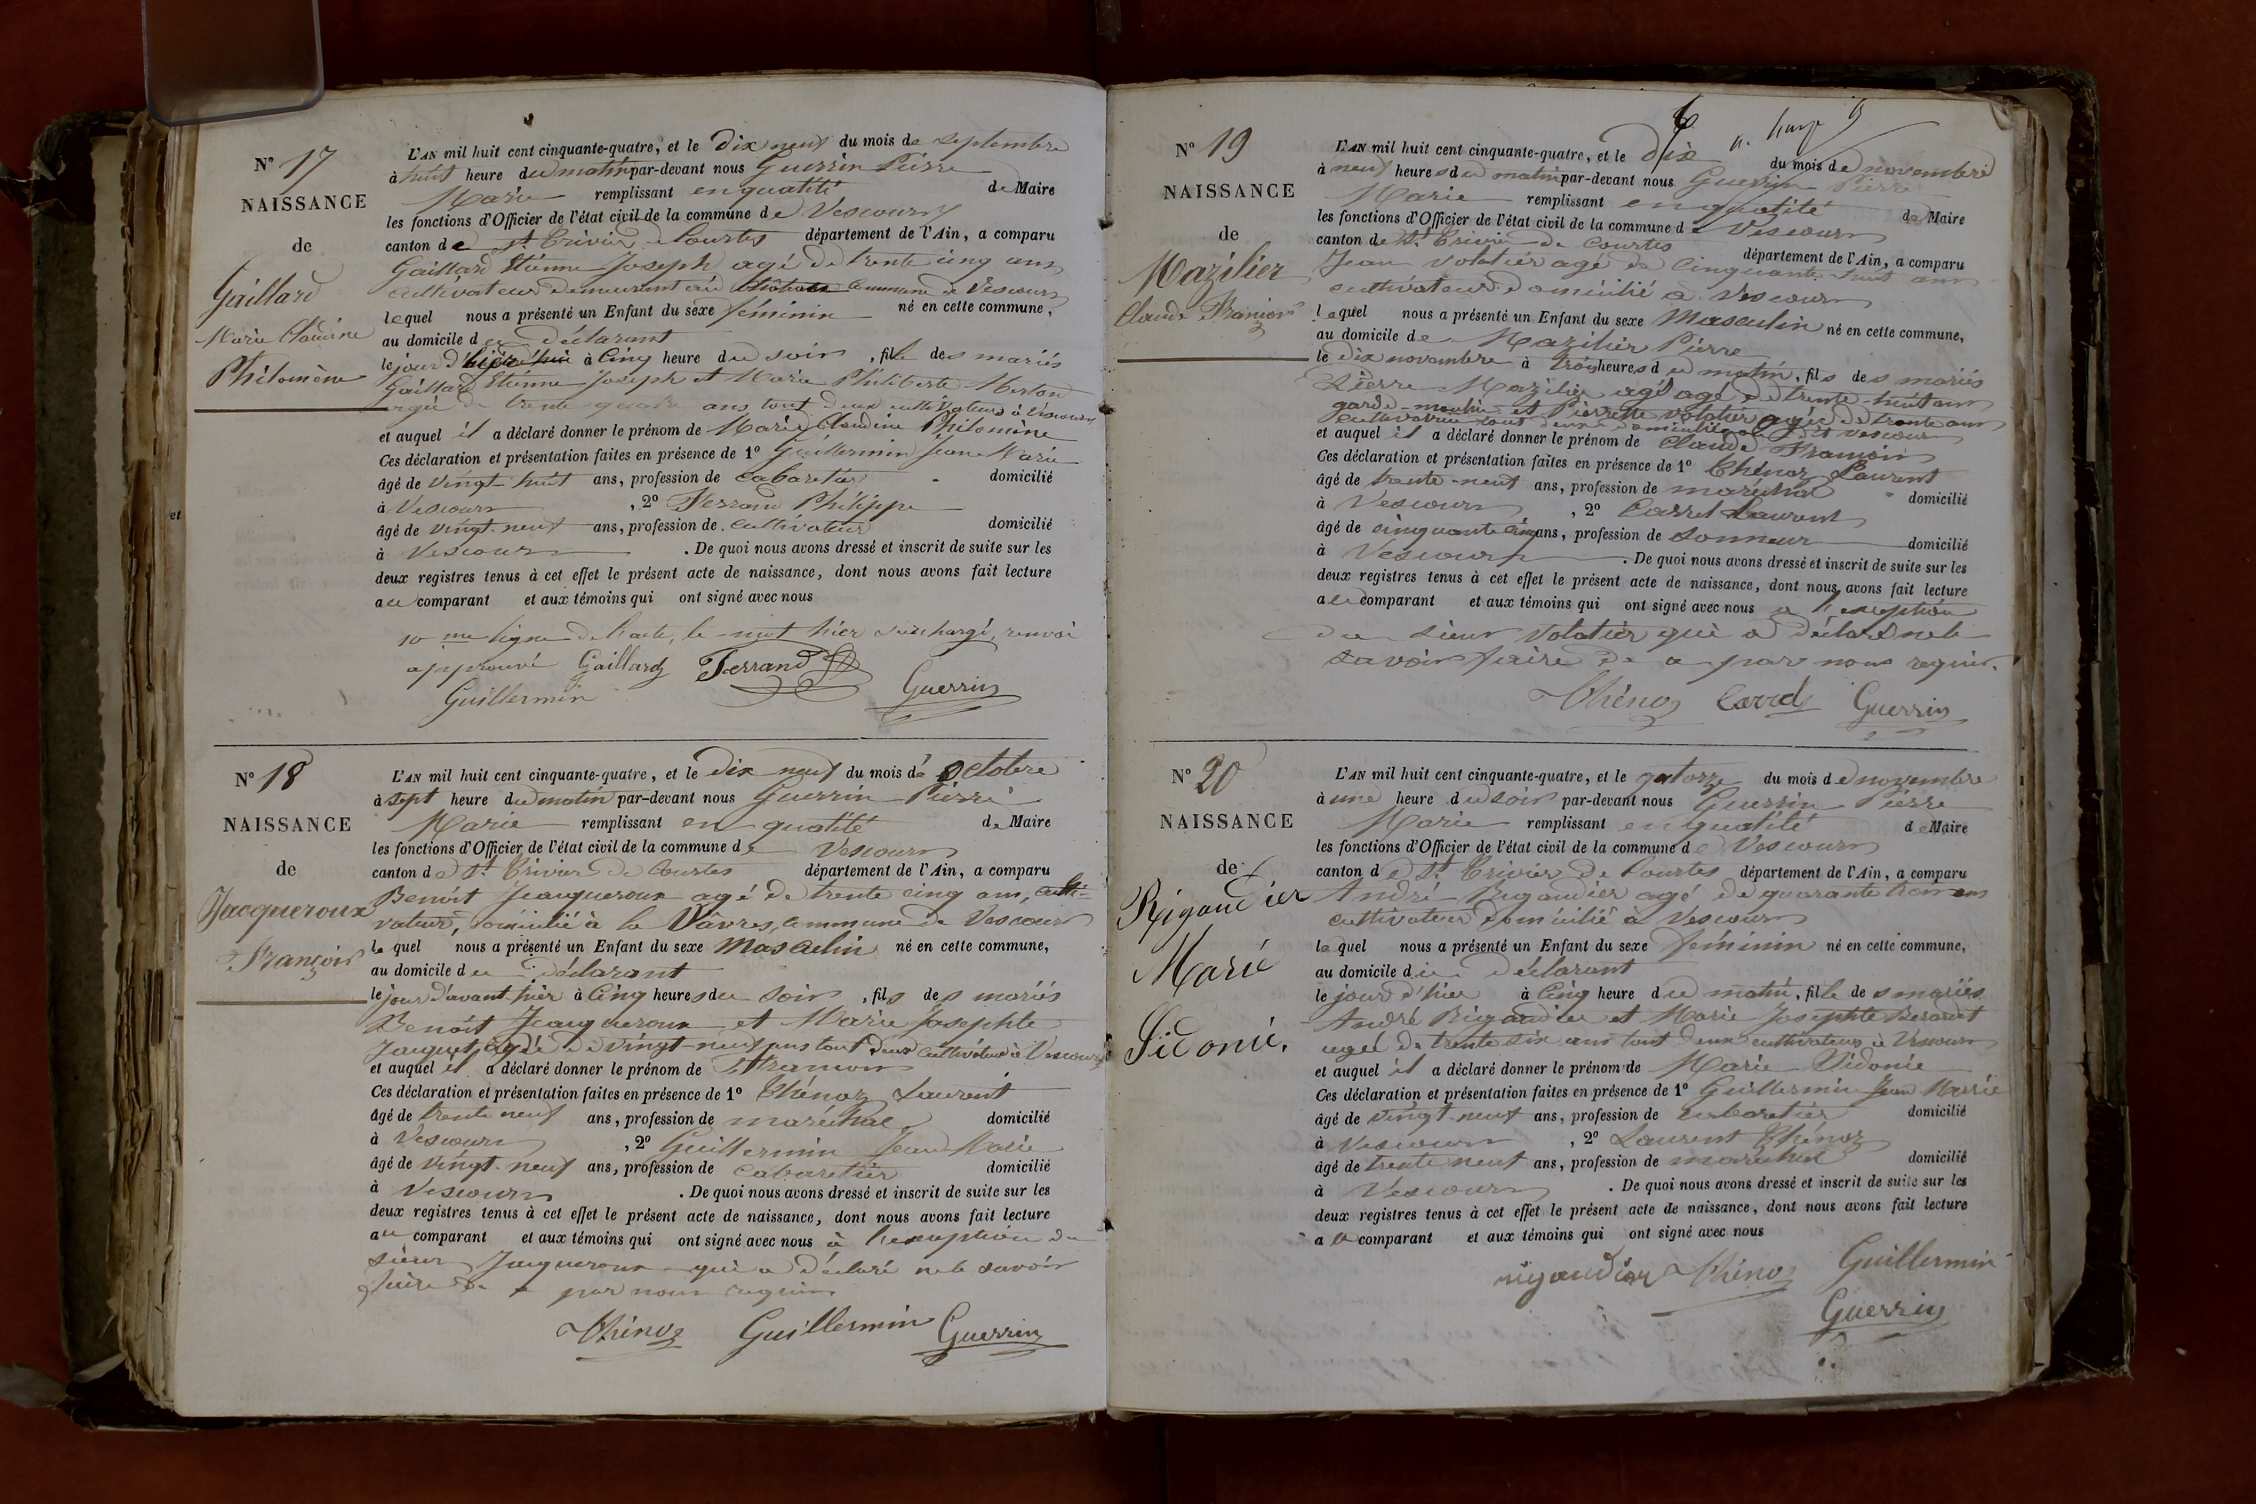 N° 17
NAISSANCE
de
Gaillard
Marie Claudine
Philomène
L'AN mil huit cent cinquante-quatre, et le dix neuf du mois de septembre
à huit heure du matin par-devant nous Guerrin Pierre
Marie remplissant en qualité de Maire
les fonctions d'Officier de l'état civil de la commune de Vescours
canton de St. Trivier de Courtes département de l'Ain, a comparu
Gaillard Etienne Joseph agé de trente cinq ans
cultivateur demeurant au commune de Vescours
lequel nous a présenté un Enfant du sexe féminin né en cette commune,
au domicile du déclarant
le jour d'hier à Cinq heure du soir, fille des mariés
Gaillard Etienne Joseph et Marie Philiberte
agée de trente quatre ans tout deux cultivateurs à Vescours
et auquel il a déclaré donner le prénom de Marie Claudine Philomène
Ces déclaration et présentation faites en présence de 1° Guillermin Jean Marie
âgé de vingt-huit ans, profession de cabaretier domicilié
à Vescours, 2° Ferrand Philippe
âgé de vingt-neuf ans, profession de cultivateur domicilié
à Vescours. De quoi nous avons dressé et inscrit de suite sur les
deux registres tenus à cet effet le présent acte de naissance, dont nous avons fait lecture
au comparant et aux témoins qui ont signé avec nous
10 me ligne de l'acte, le mot hier surchargé, renvoi
approuvé Gaillard Ferrand
Guillermin Guerrin
N° 18
NAISSANCE
de
Jacqueroux
François
L'AN mil huit cent cinquante-quatre, et le dix neuf du mois de octobre
à sept heure du matin par-devant nous Guerrin Pierre
Marie remplissant en qualité de Maire
les fonctions d'Officier de l'état civil de la commune de Vescours
canton de St. Trivier de Courtes département de l'Ain, a comparu
Benoit Jacqueroux agé de trente cinq ans, culti-
vateur, domicilié à la Vâvres, commune de Vescours
lequel nous a présenté un Enfant du sexe Masculin né en cette commune,
au domicile du déclarant
le jour d'avant-hier à Cinq heures du soir, fils des mariés
Benoit Jacqueroux et Marie Josephte
Jacquet agée de vingt-neuf ans tout deux cultivateurs à Vescours
et auquel il a déclaré donner le prénom de François
Ces déclaration et présentation faites en présence de 1° Thénoz Laurent
âgé de trente neuf ans, profession de maréchal domicilié
à Vescours, 2° Guillermin Jean Marie
âgé de vingt-neuf ans, profession de cabaretier domicilié
à Vescours. De quoi nous avons dressé et inscrit de suite sur les
deux registres tenus à cet effet le présent acte de naissance, dont nous avons fait lecture
au comparant et aux témoins qui ont signé avec nous à l'exception du
sieur Jacqueroux qui a déclaré ne le savoir
faire de ce par nous requis
Thénoz Guillermin Guerrin
N° 19
NAISSANCE
de
Mazilier
Claude François
L'AN mil huit cent cinquante-quatre, et le dix du mois de novembre
à neuf heures du matin par-devant nous Guerrin Pierre
Marie remplissant en qualité de Maire
les fonctions d'Officier de l'état civil de la commune de Vescours
canton de St. Trivier de Courtes département de l'Ain, a comparu
Jean Volatier agé de Cinquante-huit ans
cultivateur domicilié à Vescours
lequel nous a présenté un Enfant du sexe Masculin né en cette commune,
au domicile de Mazilier Pierre
le dix novembre à trois heures du matin, fils des mariés
Pierre Mazilier agé de trente-huit ans
garde-moulin et Pierrette Volatier agée de trente ans
cultivatrice tout deux domiciliés Vescours
et auquel il a déclaré donner le prénom de Claude François
Ces déclaration et présentation faites en présence de 1° Thénoz Laurent
âgé de trente-neuf ans, profession de maréchal domicilié
à Vescours, 2° Carrel Laurent
âgé de cinquante cinq ans, profession de sonneur domicilié
à Vescours. De quoi nous avons dressé et inscrit de suite sur les
deux registres tenus à cet effet le présent acte de naissance, dont nous avons fait lecture
au comparant et aux témoins qui ont signé avec nous à l'exception
du sieur Volatier qui a déclaré ne le
savoir faire de ce par nous requis.
Thénoz Carrel Guerrin
N° 20
NAISSANCE
de
Rigaudier
Marie
Sidonie.
L'AN mil huit cent cinquante-quatre, et le quatorze du mois de novembre
à une heure du soir par-devant nous Guerrin Pierre
Marie remplissant en qualité de Maire
les fonctions d'Officier de l'état civil de la commune de Vescours
canton de St. Trivier de Courtes département de l'Ain, a comparu
André Rigaudier agé de quarante trois ans
cultivateur domicilié à Vescours
lequel nous a présenté un Enfant du sexe féminin né en cette commune,
au domicile du déclarant
le jour d'hier à Cinq heure du matin, fille des mariés
André Rigaudier et Marie Josephte
agée de trente six ans tout deux cultivateurs à Vescours
et auquel il a déclaré donner le prénom de Marie Sidonie
Ces déclaration et présentation faites en présence de 1° Guillermin Jean Marie
âgé de vingt-neuf ans, profession de cabaretier domicilié
à Vescours, 2° Laurent Thénoz
âgé de trente neuf ans, profession de maréchal domicilié
à Vescours. De quoi nous avons dressé et inscrit de suite sur les
deux registres tenus à cet effet le présent acte de naissance, dont nous avons fait lecture
au comparant et aux témoins qui ont signé avec nous
rigaudier Thénoz Guillermin
Guerrin